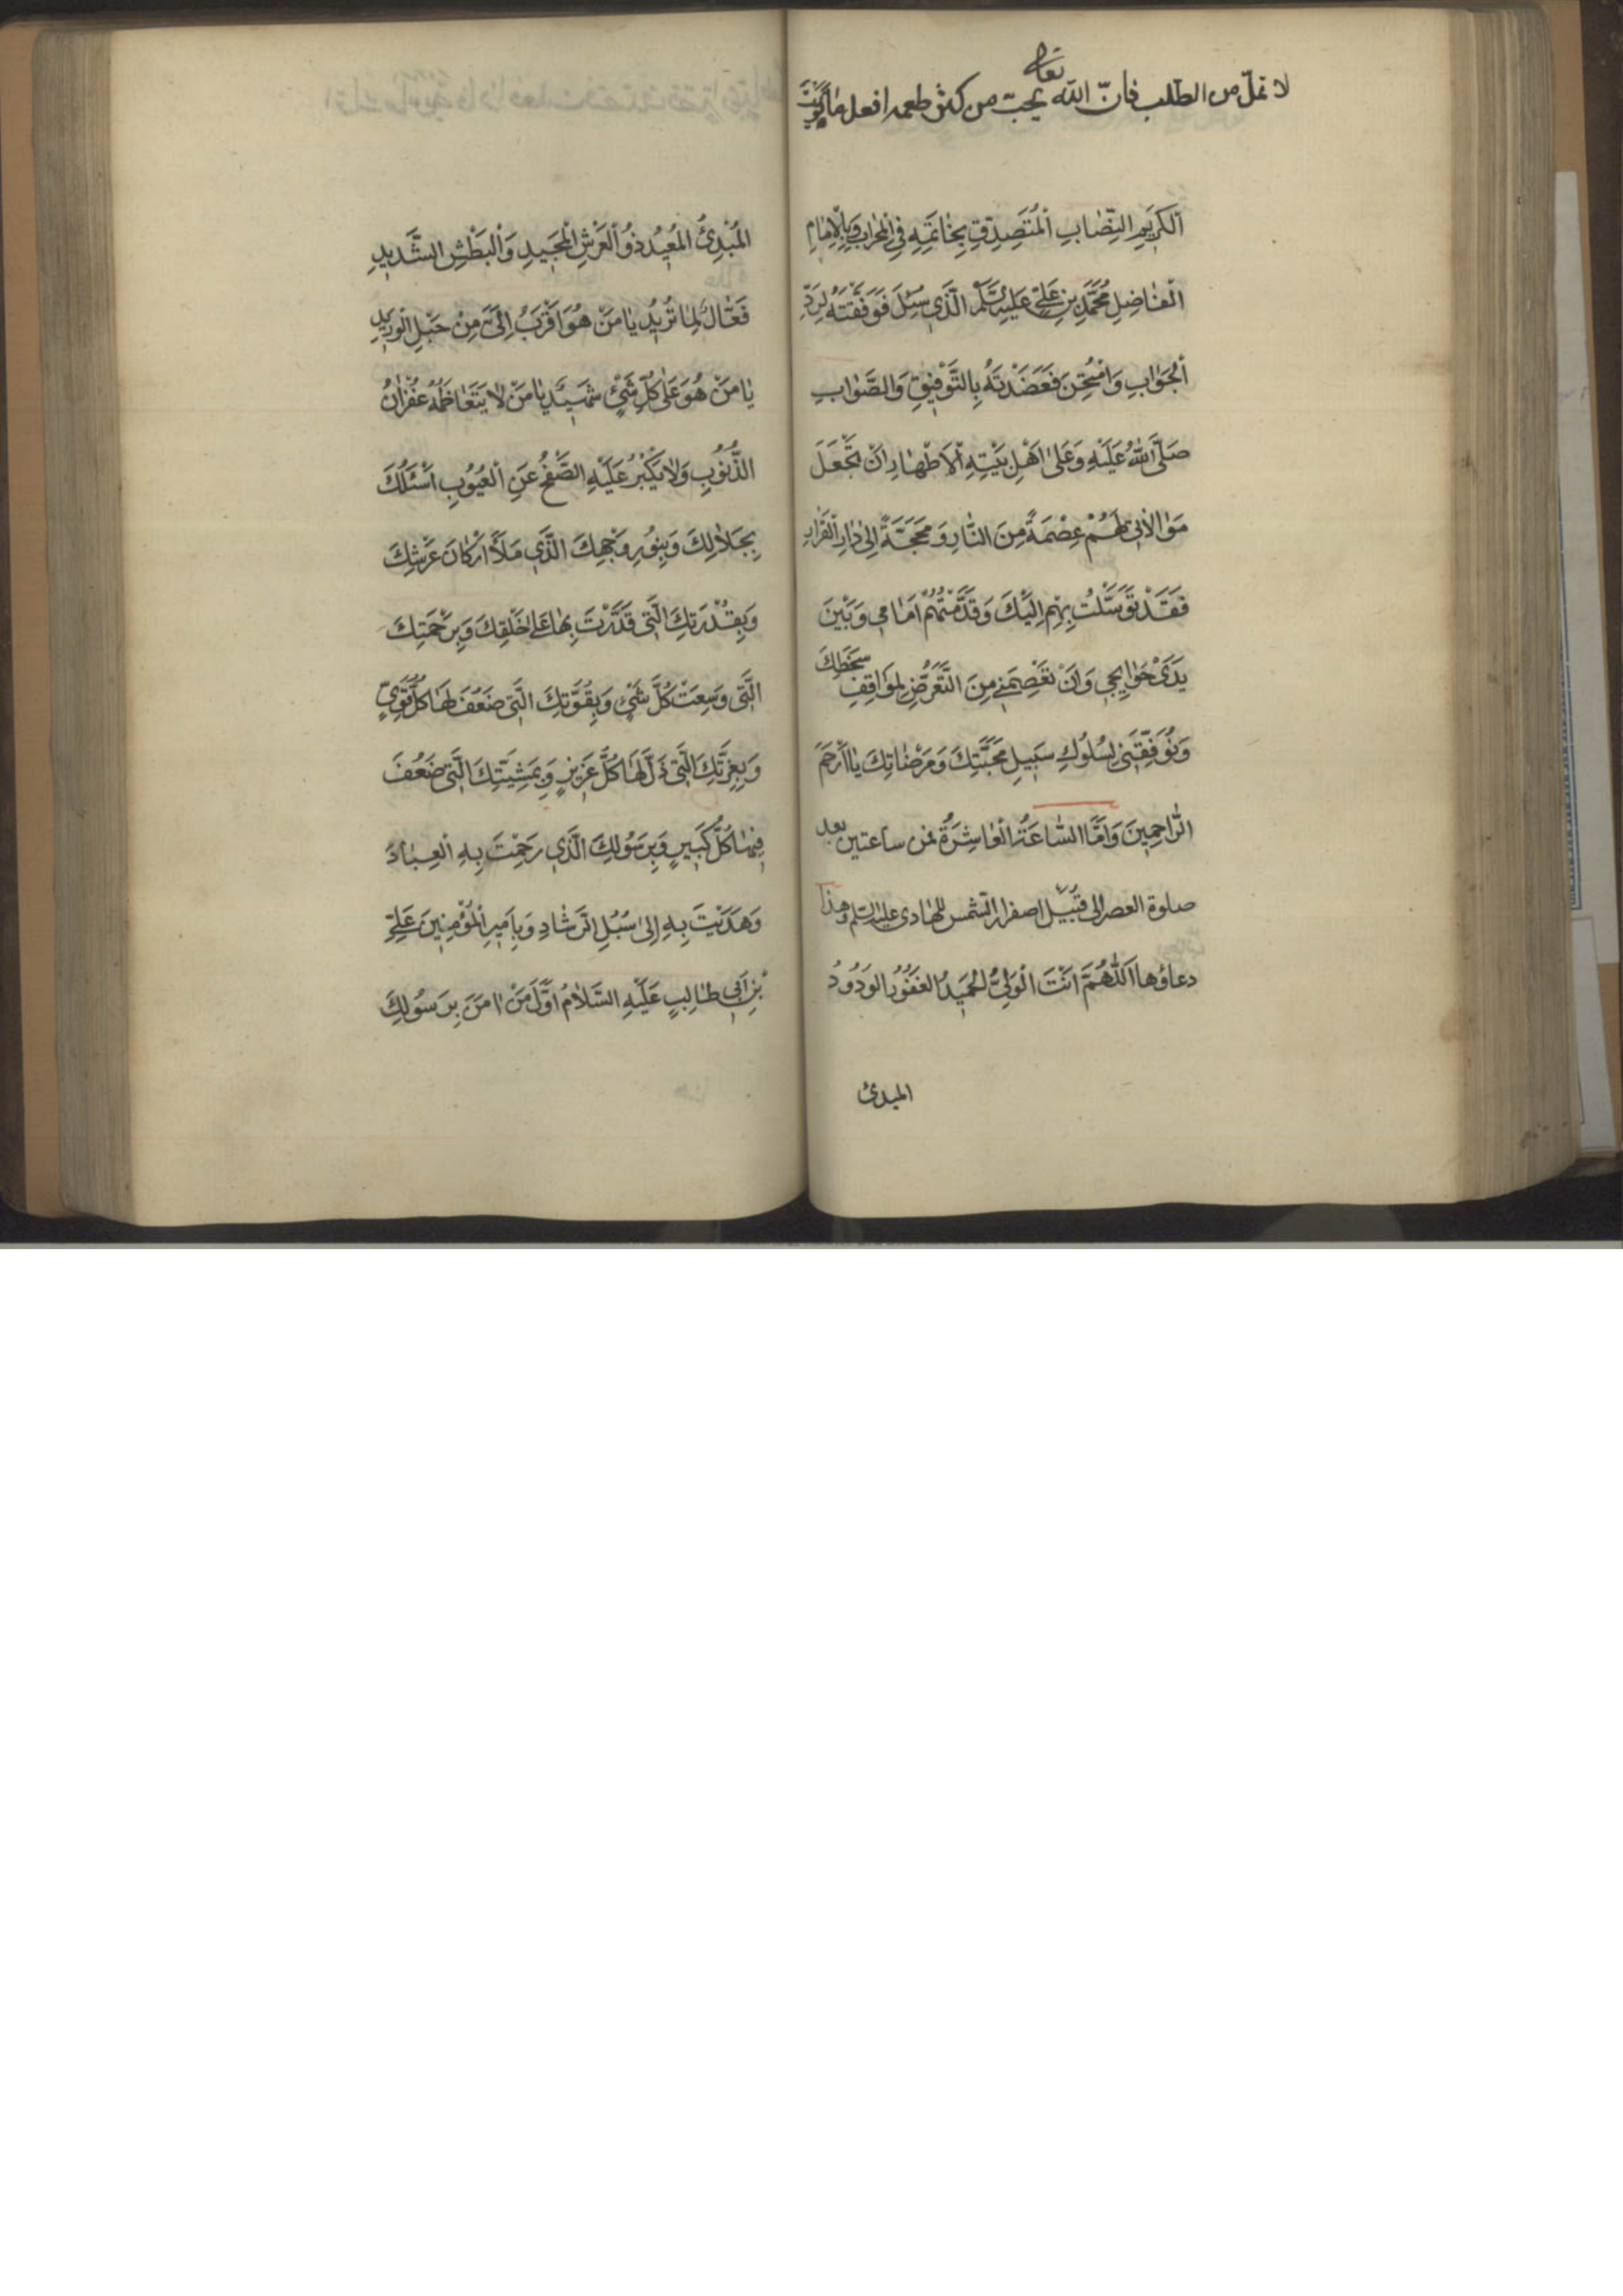 لا تملّ من الطّلب فانّ الله تعالى يحبّ من كثر طعمه افعل ما
اَلْكَرِيمِ النِّصَابِ اَلْمُتَصَدِّقِ بِخَاتَمِهِ فِي الْمِحْرَابِ وَبِالْاِمَامِ
الْفَاضِلِ مُحَمَّدِ بْنِ عَلِيٍّ عَلَيْهِ السَّلَمُ الَّذِي سُئِلَ فَوَفَّقْتَهُ لِرَدِّ
الْجَوَابِ وَامْتُحِنَ فَعَضَدْتَهُ بِالتَّوْفِيقِ وَالصَّوَابِ
صَلَّى اللهُ عَلَيْهِ وَعَلَى اَهْلِ بَيْتِهِ الْاَطْهَارِ اَنْ تَجْعَلَ
مَوَالاتِي لَهُمْ عِصْمَةً مِنَ النَّارِ وَمَحَجَّةً اِلَى دَارِ الْقَرَارِ
فَقَدْ تَوَسَّلْتُ بِهِمْ اِلَيْكَ وَقَدَّمْتُهُمْ اَمَامِي وَبَيْنَ
يَدَيْ حَوَايِجِي وَاَنْ تَعْصِمَنِي مِنَ التَّعَرُّضِ لِمَوَاقِفِ سَخَطِكَ
وَتُوَفِّقَنِي لِسُلُوكِ سَبِيلِ مَحَبَّتِكَ وَمَرْضَاتِكَ يَا اَرْحَمَ
الرَّاحِمِينَ وَاَمَّا السَّاعَةُ الْعَاشِرَةُ فمن ساعتين بعد
صلوة العصر الى قُبَيْل اصفرار الشمس للهادى عليه السلم وهذا
دعاؤها اَللّهُمَّ اَنْتَ الْوَلِيُّ الْحَمِيدُ الْغَفُورُ الْوَدُودُ
المبدئ
الْمُبْدِئُ الْمُعِيدُ ذُو الْعَرْشِ الْمَجِيدِ وَالْبَطْشِ الشَّدِيدِ
فَعَّالٌ لِمَا تُرِيدُ يَا مَنْ هُوَ اَقْرَبُ اِلَيَّ مِنْ حَبْلِ الْوَرِيدِ
يَا مَنْ هُوَ عَلَى كُلِّ شَيْءٍ شَهِيدٌ يَا مَنْ لا يَتَعَاظَمُهُ غُفْرَانُ
الذُّنُوبِ وَلا يَكْبُرُ عَلَيْهِ الصَّفْحُ عَنِ الْعُيُوبِ اَسْئَلُكَ
بِجَلالِكَ وَبِنُورِ وَجْهِكَ الَّذِي مَلَاَ اَرْكَانَ عَرْشِكَ
وَبِقُدْرَتِكَ الَّتِي قَدَّرْتَ بِهَا عَلَى خَلْقِكَ وَبِرَحْمَتِكَ
الَّتِي وَسِعَتْ كُلَّ شَيْءٍ وَبِقُوَّتِكَ الَّتِي ضَعُفَ لَهَا كُلُّ قَوِيٍّ
وَبِعِزَّتِكَ الَّتِي ذَلَّ لَهَا كُلُّ عَزِيزٍ وَبِمَشِيَّتِكَ الَّتِي ضَعُفَ
فِيهَا كُلُّ كَبِيرٍ وَبِرَسُولِكَ الَّذِي رَحِمْتَ بِهِ الْعِبَادَ
وَهَدَيْتَ بِهِ اِلَى سُبُلِ الرَّشَادِ وَبِاَمِيرِ الْمُؤْمِنِينَ عَلِيِّ
بْنِ اَبِي طَالِبٍ عَلَيْهِ السَّلامُ اَوَّلِ مَنْ امَنَ بِرَسُولِكَ